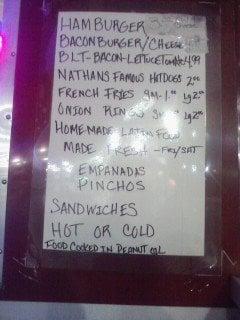 HAMBURGER
BACONBURGER/CHEESE
BLT-BACON-LETTUCETOMATO 4.99
NATHANS FAMOUS HOTDOGS 2.00
FRENCH FRIES SM-1.00 Lg 2.00
ONION RINGS SM Lg 2.00
HOME-MADE LATIN FOOD
MADE FRESH -FRI/SAT
EMPANADAS
PINCHOS
SANDWICHES
HOT OR COLD
FOOD COOKED IN PEANUT OIL